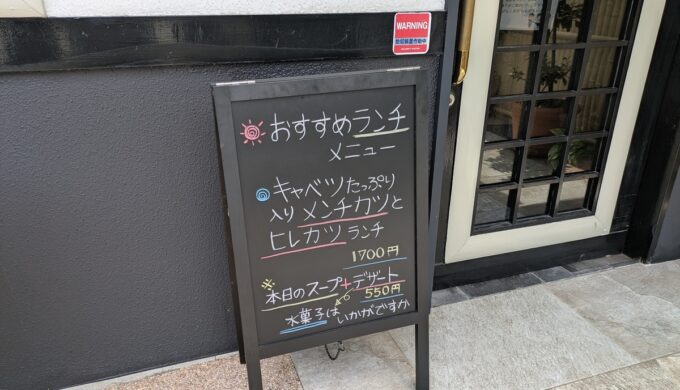 WARNING
おすすめランチ
メニュー
キャベツたっぷり
入りメンチカツと
ヒレカツランチ
1700円
※
本日のスープ+デザート
550円
水菓子はいかがですか